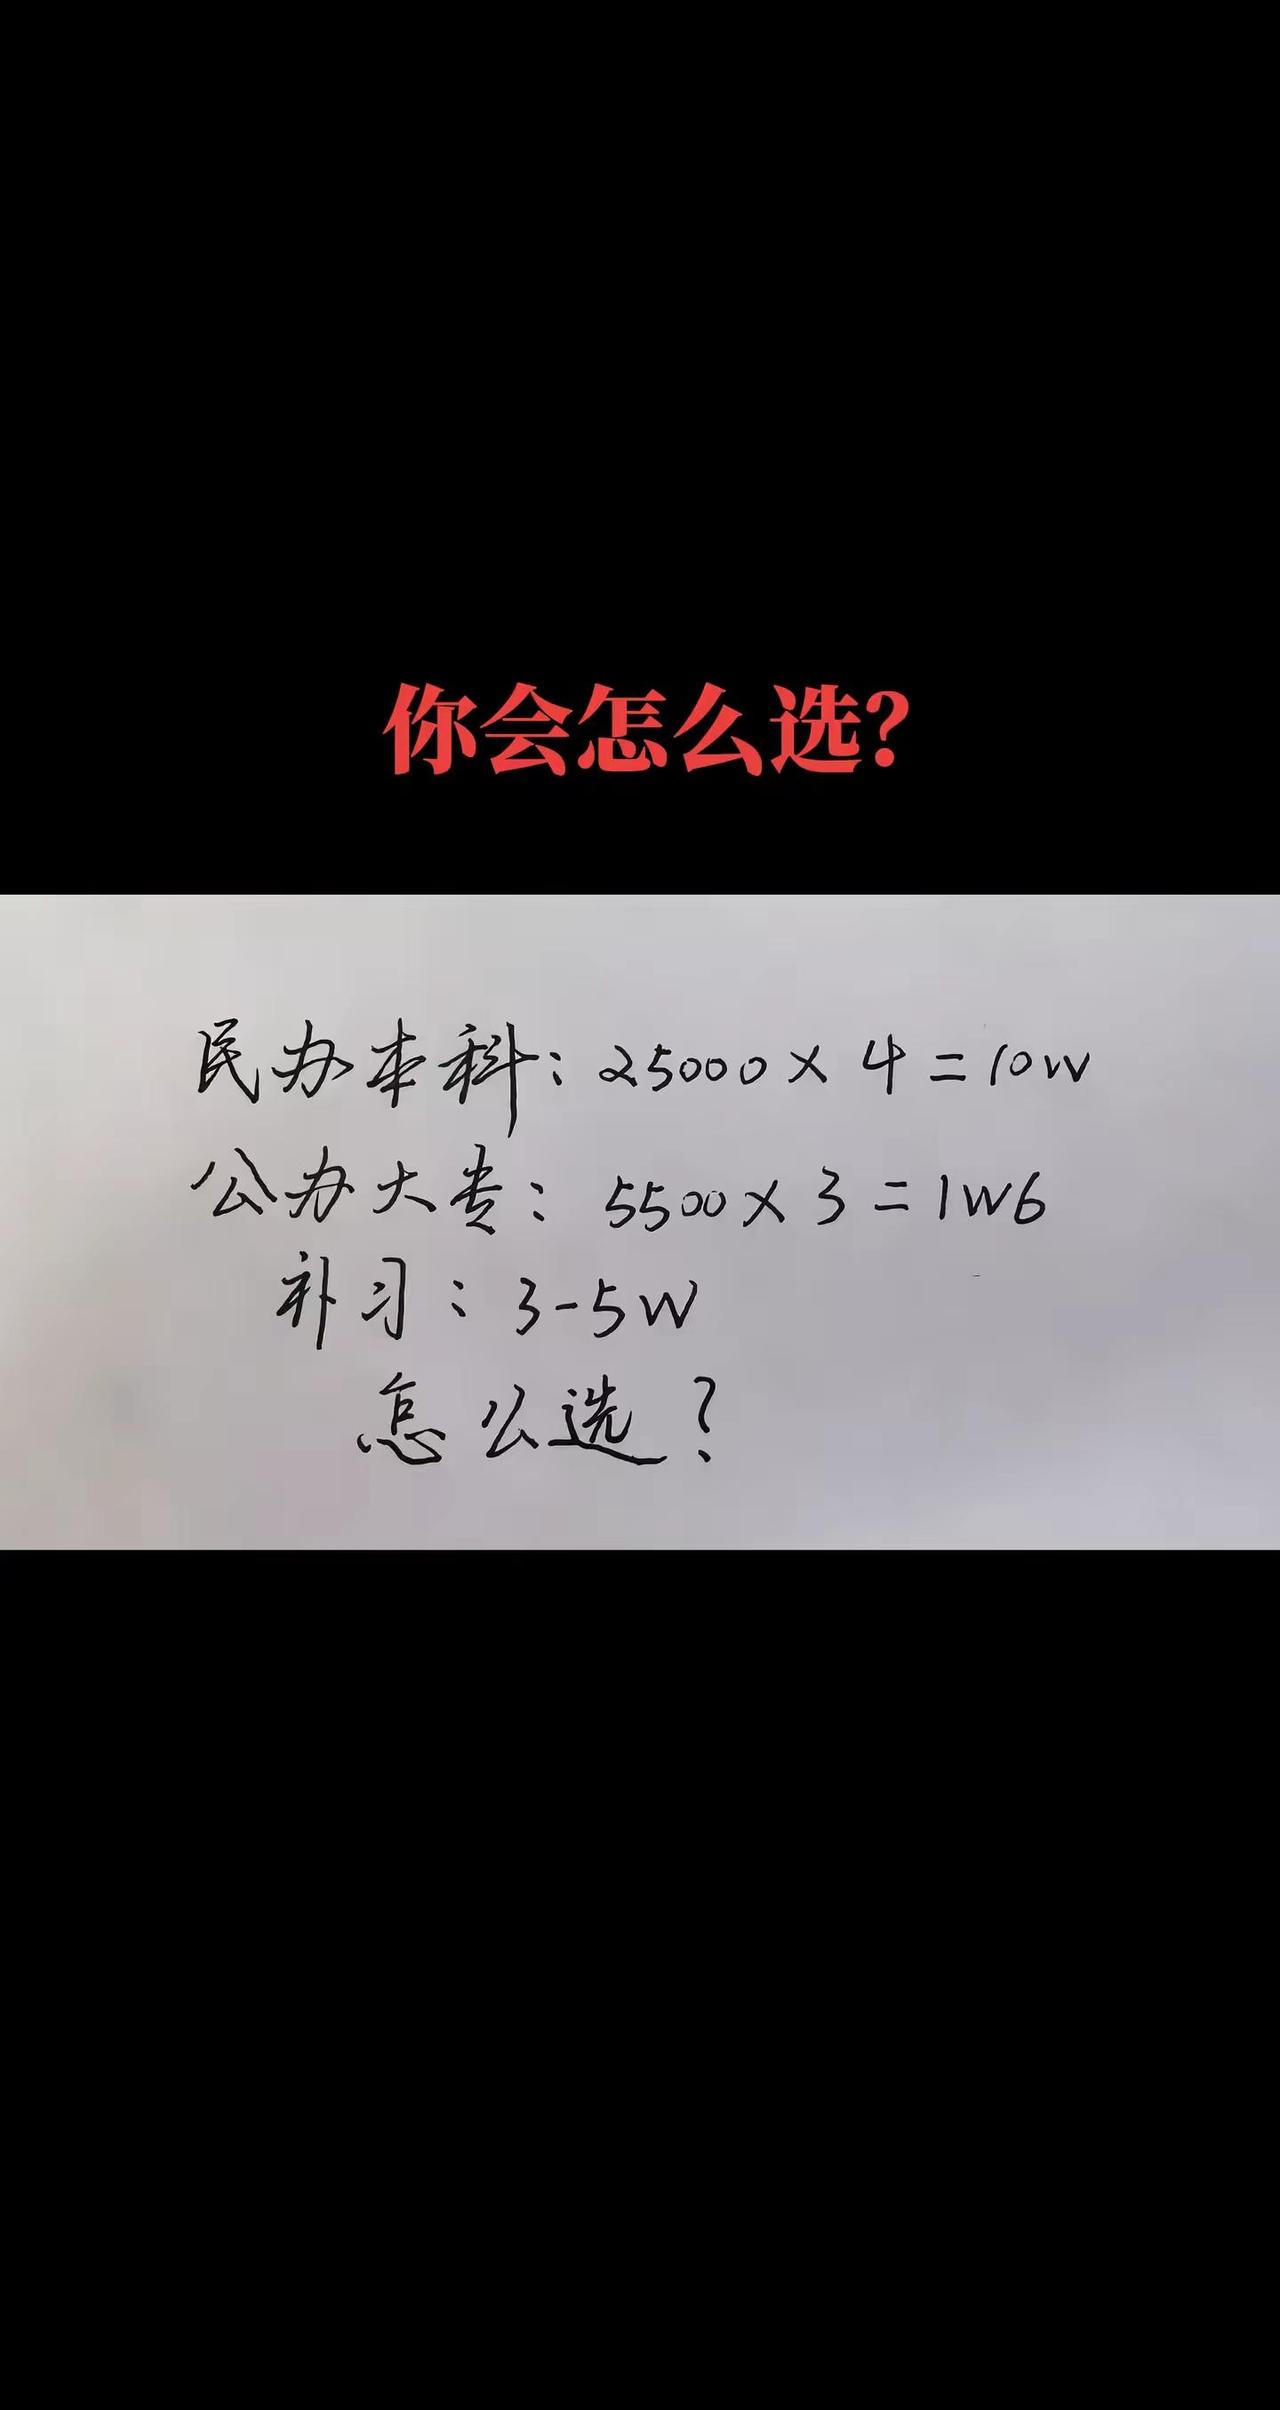 你会怎么选？
民办本科：25000×4=10W
公办大专：5500×3=1W6
补习：3-5W
怎么选？